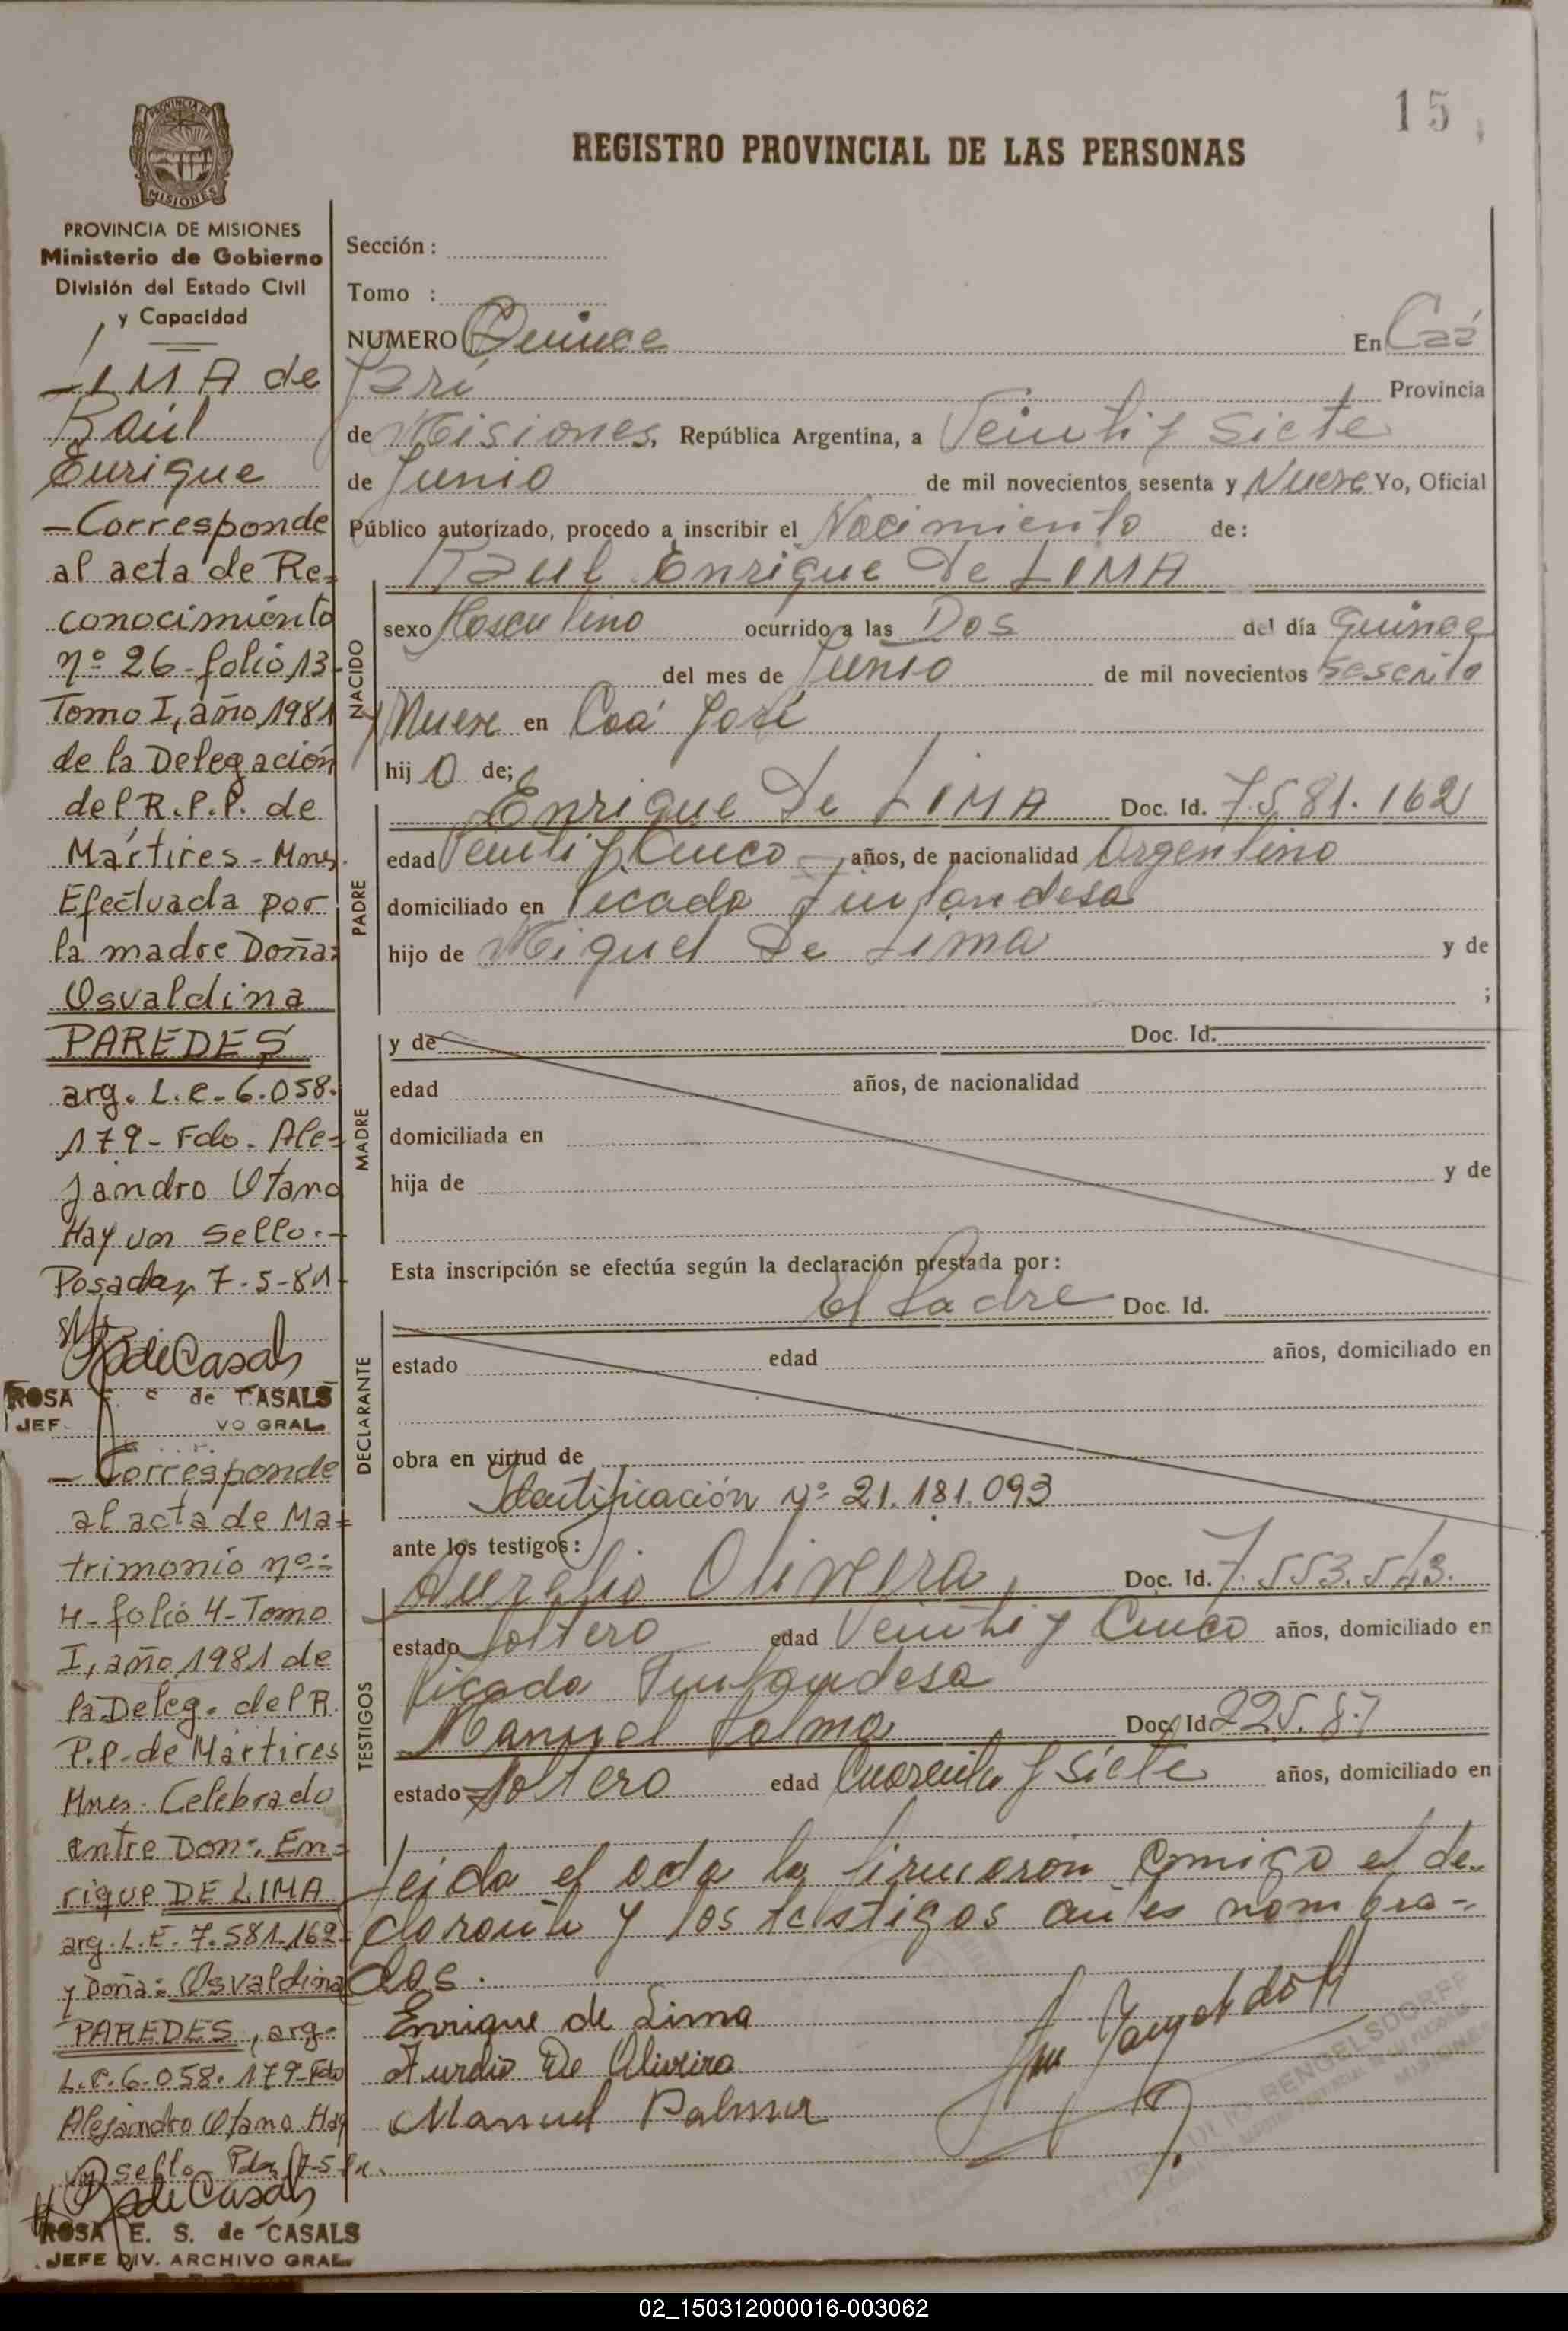 15
REGISTRO PROVINCIAL DE LAS PERSONAS
PROVINCIA DE
MISIONES
PROVINCIA DE MISIONES
Ministerio de Gobierno
División del Estado Civil
y Capacidad
LIMA de
Raúl
Enrique
-Corresponde
al acta de Re=
conocimiento
nº 26-folio 13-
Tomo I, año 1981
de la Delegación
del R.P.P. de
Mártires-Mnes.
Efectuada por
la madre Doña:
Osvaldina
PAREDES
arg. L.C. 6.058.
179- Fdo. Ale=
jandro Otano
Hay un sello.-
Posadas, 7-5-81-
ROSA de CASALS
JEF VO GRAL.
-Corresponde
al acta de Ma=
trimonio nº:
4-folio 4-Tomo
I, año 1981 de
la Deleg. del R.
P.P. de Mártires
Mnes. Celebrado
entre Don: En=
rique DE LIMA
arg. L.E. 7.581.162-
y Doña: Osvaldina
PAREDES, arg.
L.C. 6.058.179-Fdo
Alejandro Otano Hay
un sello. Pdas, 7-5-81.
ROSA E. S. de CASALS
JEFE DIV. ARCHIVO GRAL.
Sección :
Tomo :
NUMERO Quince En Caá
Yarí Provincia
de Misiones, República Argentina, a Veinti y Siete
de Junio de mil novecientos sesenta y Nueve Yo, Oficial
Público autorizado, procedo a inscribir el Nacimiento de:
Raul Enrique De LIMA
NACIDO
sexo Masculino ocurrido a las Dos del día Quince
del mes de Junio de mil novecientos Sesenta
y Nueve en Caá Yarí
hij o de;
PADRE
Enrique De LIMA Doc. Id. 7.581.162
edad Veinti y Cinco años, de nacionalidad Argentino
domiciliado en Picada Finlandesa
hijo de Miguel De Lima y de
;
MADRE
y de Doc. Id.
edad años, de nacionalidad
domiciliada en
hija de y de
Esta inscripción se efectúa según la declaración prestada por :
El Padre Doc. Id.
DECLARANTE
estado edad años, domiciliado en
obra en virtud de
Identificación nº 21.181.093
ante los testigos :
TESTIGOS
Aurelio Olivera, Doc. Id. 7.553.543.
estado Soltero edad Veinti y Cinco años, domiciliado en
Picada Finlandesa
Manuel Palma Doc. Id
estado Soltero edad Cuarenta y siete años, domiciliado en
Leida el acta la firmaron comigo el de-
clarante y los testigos antes nombra-
dos.
Enrique de Lima
Aurelio De Oliveira
Manuel Palma
RENGELSDORFF
MISIONES
02_150312000016-003062